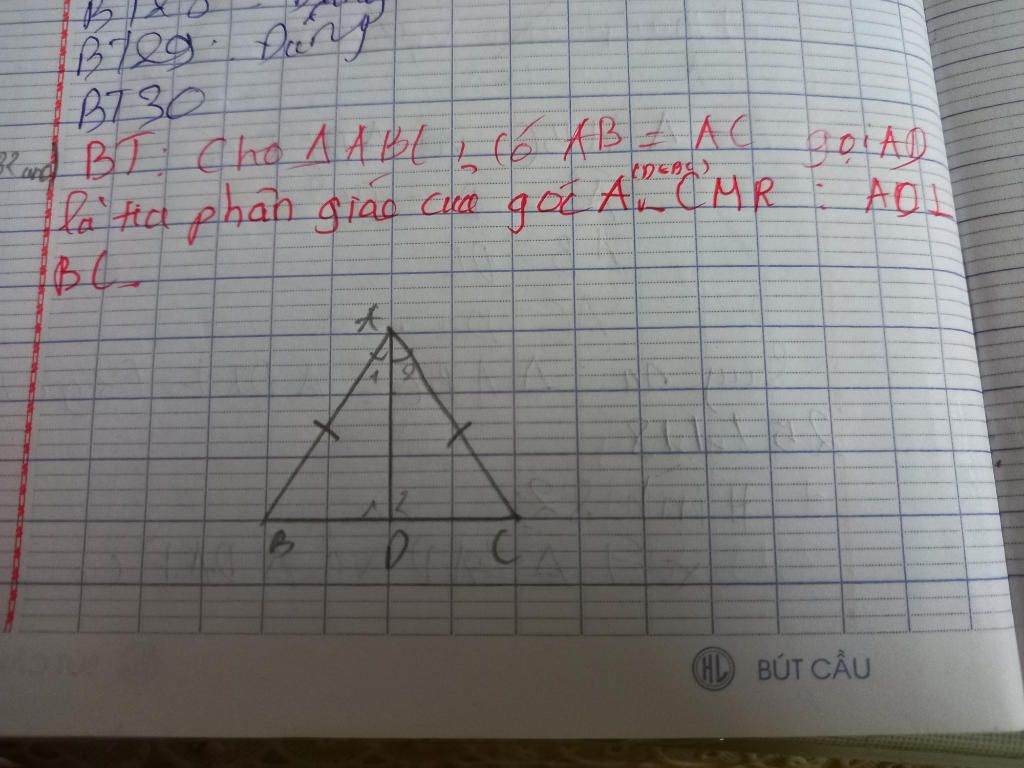 BT29. Đúng
BT30
BT: Cho ΔABC, có AB = AC gọi AD
(D∈BC)
là tia phân giác của góc A. CMR: AD⊥
BC
A
1 2
1 2
B D C
HL BÚT CẦU